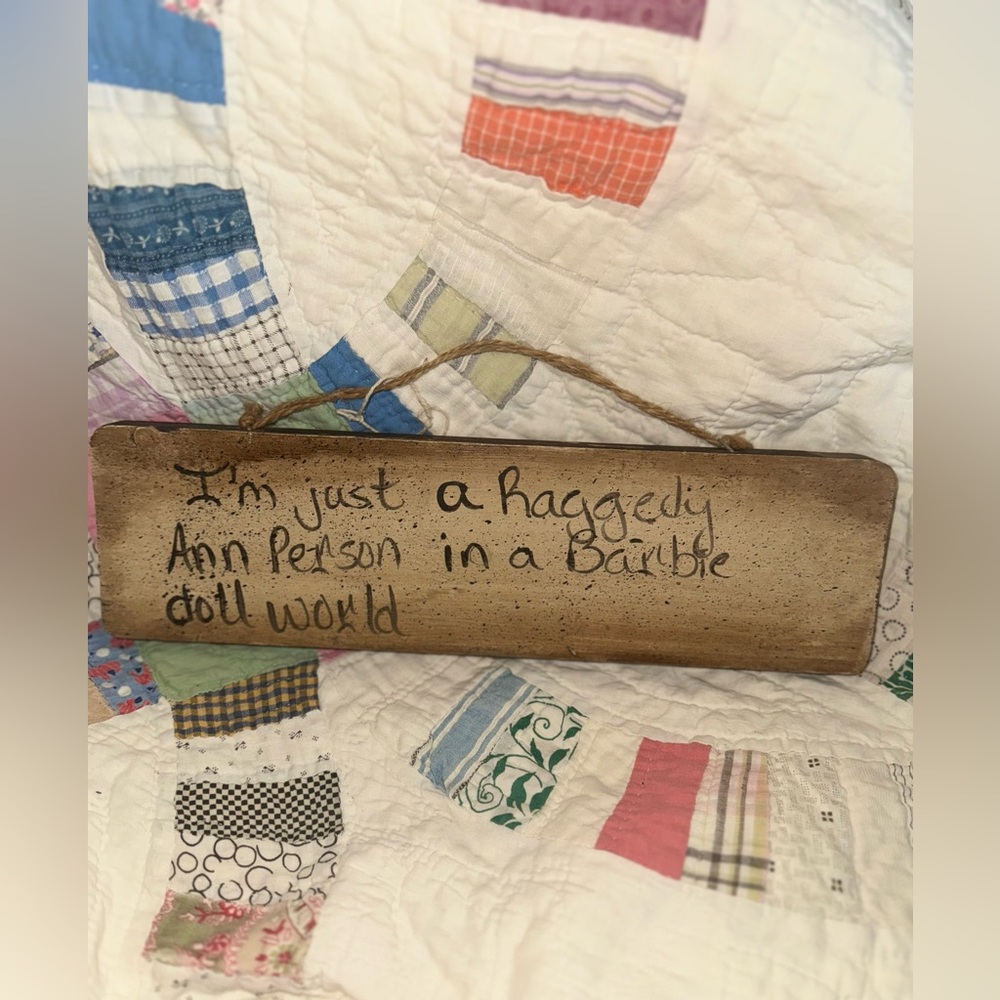 I'm just a Raggedy
Ann Person in a Barbie
doll world